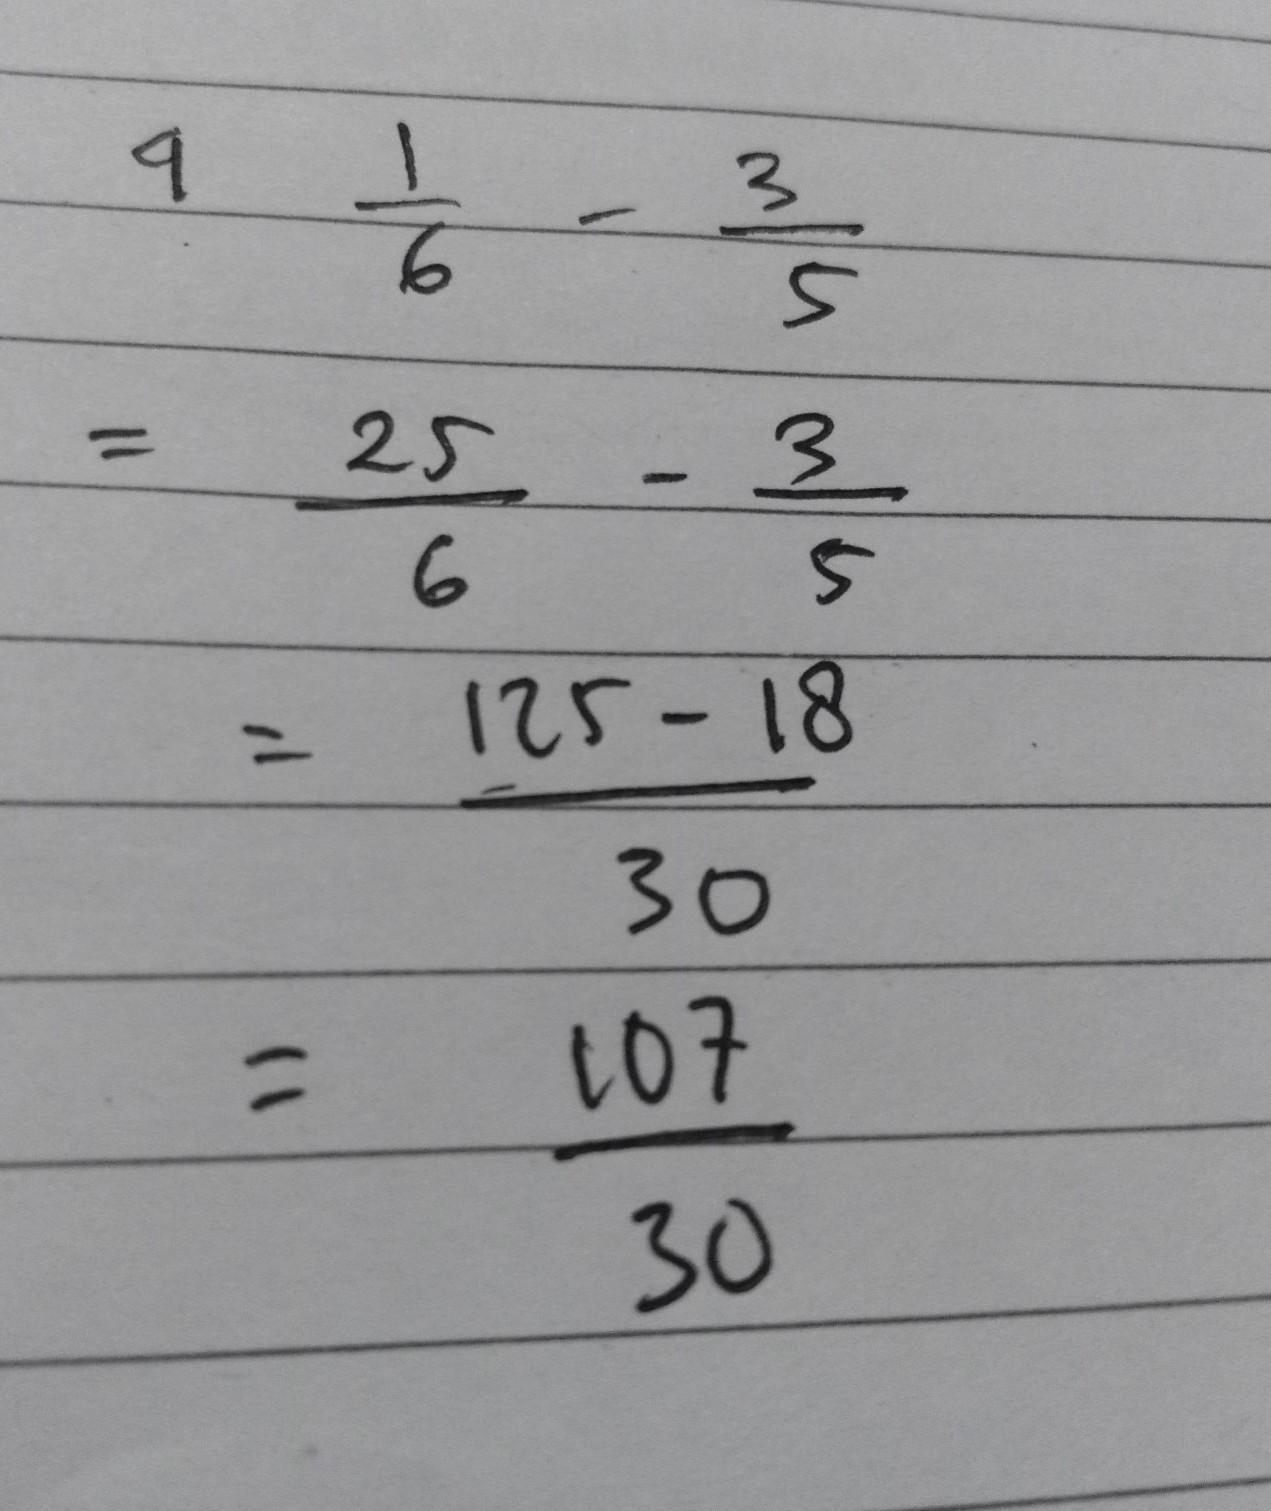 4 1/6 - 3/5
= 25/6 - 3/5
= 125 - 18/30
= 107/30